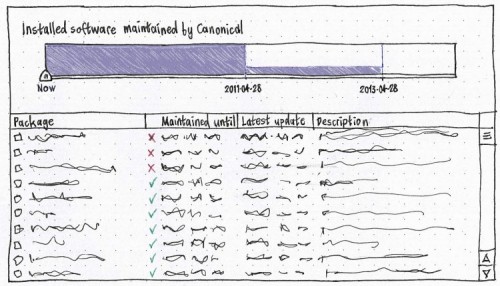 Installed software maintained by Canonical
Now 2011-04-28 2013-04-28
Package Maintained until Latest update Description